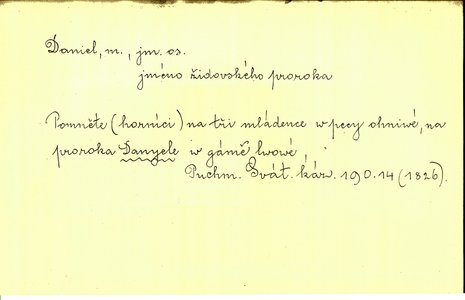 Daniel, m., jm. os.
jméno židovského proroka
Pomněte (horníci) na tři mládence w pecy ohniwé, na
proroka Danyele w gámě lwowé,
Puchm. Svát. káz. 190.14 (1826).